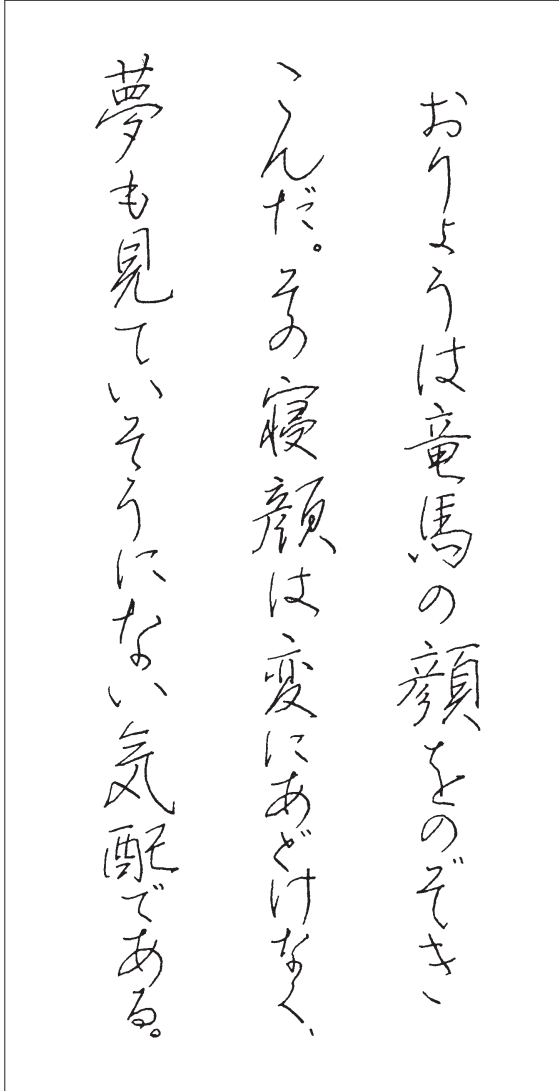 おりょうは竜馬の顔をのぞき
こんだ。その寝顔は変にあどけなく、
夢も見ていそうにない気配である。